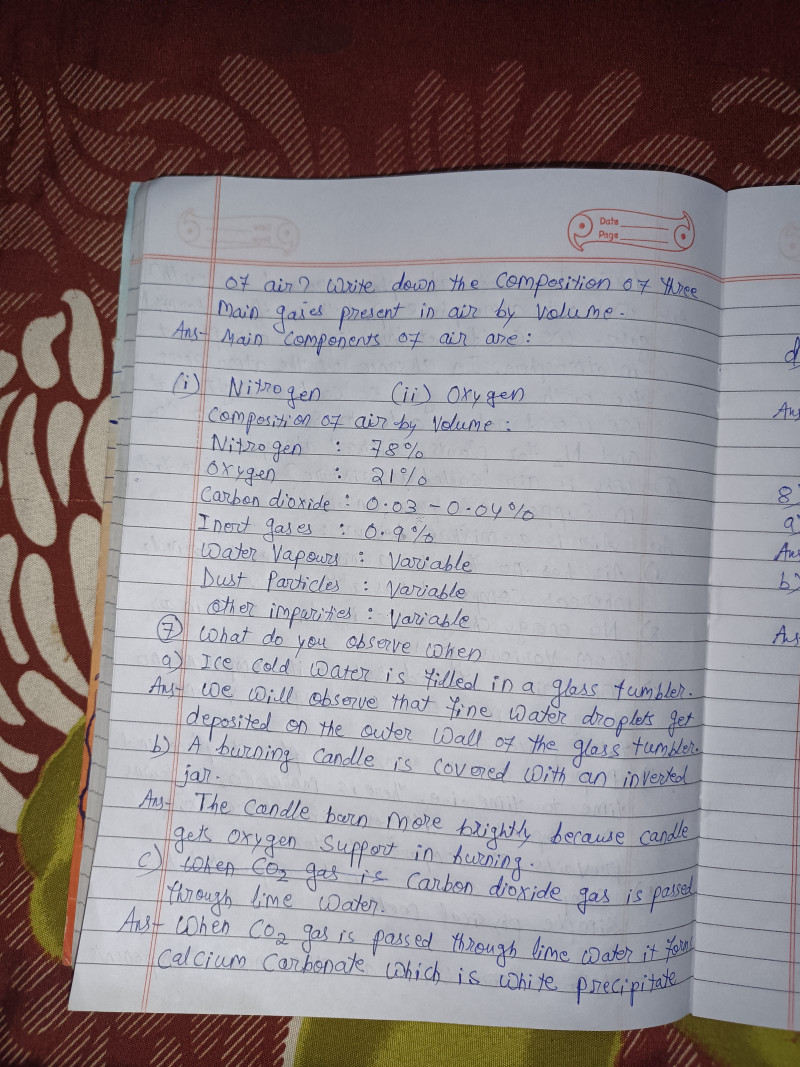 Date
Page
of air? Write down the composition of three
main gases present in air by volume.
Ans- Main components of air are:
(i) Nitrogen (ii) Oxygen
Composition of air by volume:
Nitrogen : 78%
Oxygen : 21%
Carbon dioxide : 0.03 - 0.04%
Inert gases : 0.9%
Water vapours : Variable
Dust Particles : Variable
Other imparities : Variable
7 What do you observe when
a) Ice cold water is filled in a glass tumbler.
Ans- We will observe that fine water droplets get
deposited on the outer wall of the glass tumbler.
b) A burning candle is covered with an inverted
jar.
Ans- The candle burn more brightly because candle
gets oxygen support in burning.
c) When CO2 gas is Carbon dioxide gas is passed
through lime water.
Ans- When CO2 gas is passed through lime water it form
Calcium Carbonate which is white precipitate
d
Ans
8)
a)
An
b)
Ans